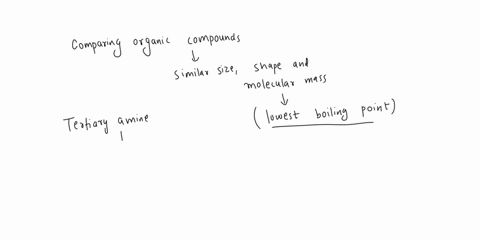 Comparing organic compounds
similar size, shape and
molecular mass
(lowest boiling point)
Tertiary amine